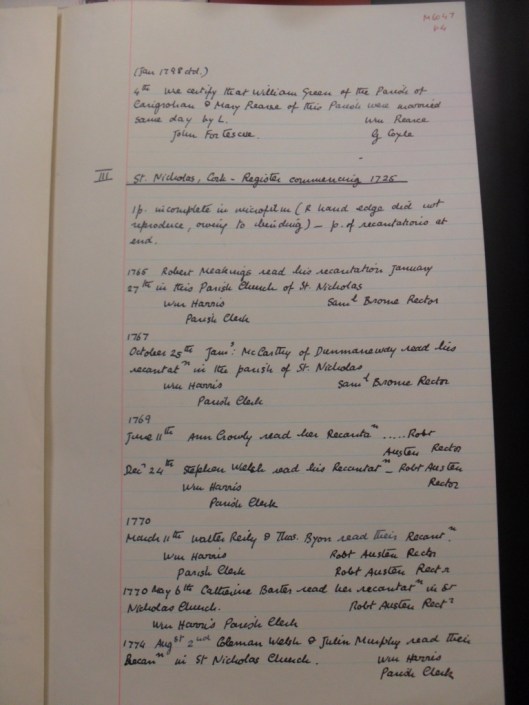 M6047
p4
(Jan 1798 ctd.)
4th We certify that William Green of the Parish of
Carigrohan & Mary Pearce of this Parish were married
same day by L. Wm Pearce
John Fortescue. G Coyle
III St. Nicholas, Cork - Register commencing 1725
1p. incomplete in microfilm (R hand edge did not
reproduce, owing to binding) - p. of recantations at
end.
1765 Robert Meakings read his recantation January
27th in this Parish Church of St. Nicholas
Wm Harris Saml Brome Rector
Parish Clerk
1767
October 25th Jams: McCarthy of Dunmaneway read his
recantatn in the parish of St. Nicholas
Wm Harris Saml Brome Rector
Parish Clerk
1769
June 11th Ann Crowly read her Recantan ..... Robt
Austen Rector
Decr 24th Stephen Welsh read his Recantatn - Robt Austen
Wm Harris Rector
Parish Clerk
1770
March 11th Walter Reily & Thos. Byon read their Recantn.
Wm Harris Robt Austen Rector
Parish Clerk Robt Austen Rectr
1770 May 6th Catherine Barter read her recantatn in St
Nicholas Church. Robt Austen Rectr
Wm Harris Parish Clerk
1774 Augst 2nd Coleman Welsh & Julin Murphy read their
Recann in St Nicholas Church. Wm Harris
Parish Clerk